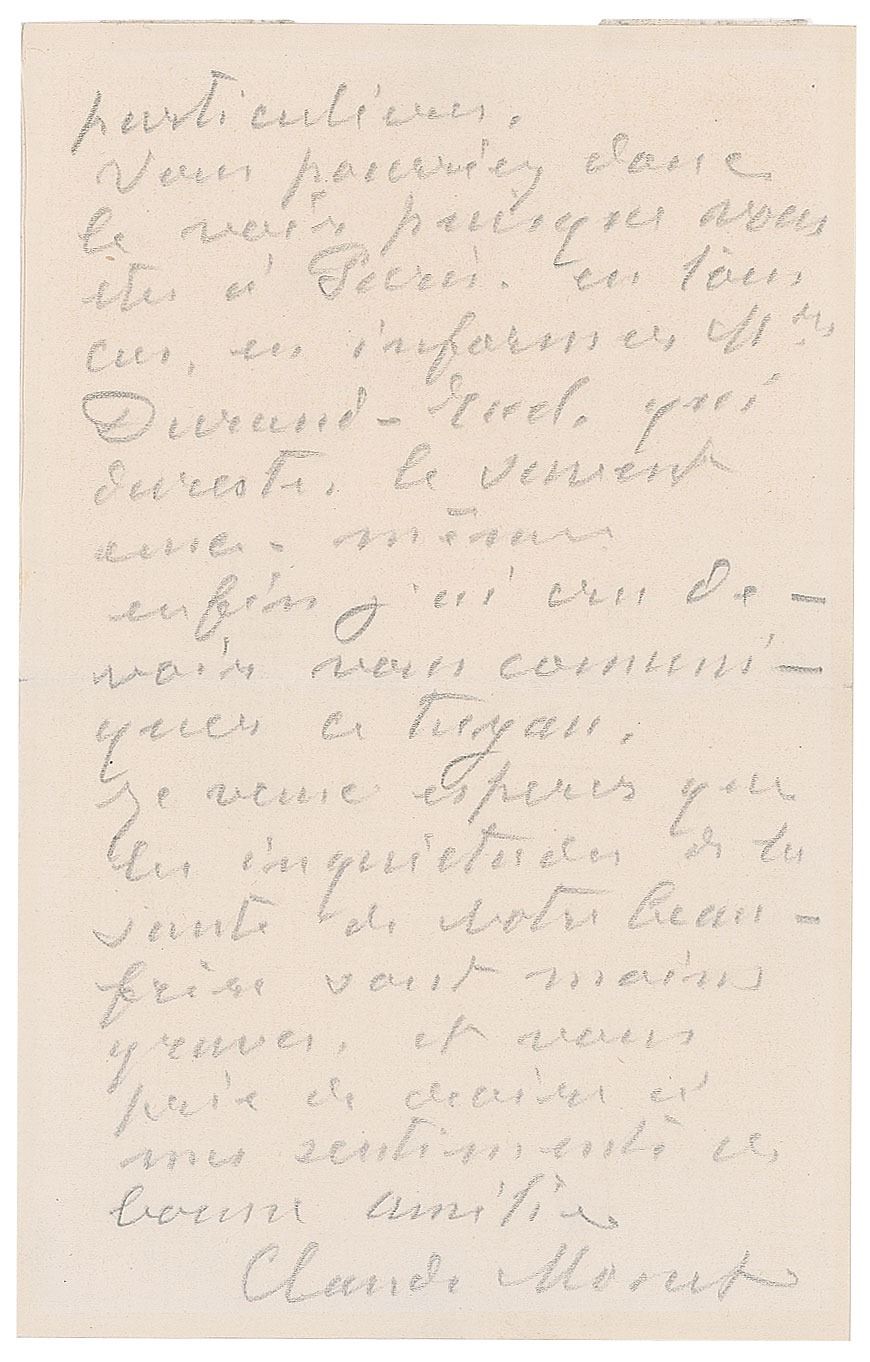 particulières.
Vous pourriez donc
le voir puisque vous
etes à Paris. en tous
cas, en informer Mrs
Durand-Ruel. qui
dureste. le verront
eux-même
enfin j'ai cru de-
voir vous communi-
quer ce tuyau.
Je veux esperer que
les inquietudes de la
santé de votre beau-
frère sont moins
graves, et vous
prie de croire à
mes sentiments de
bonne amitié
Claude Monet